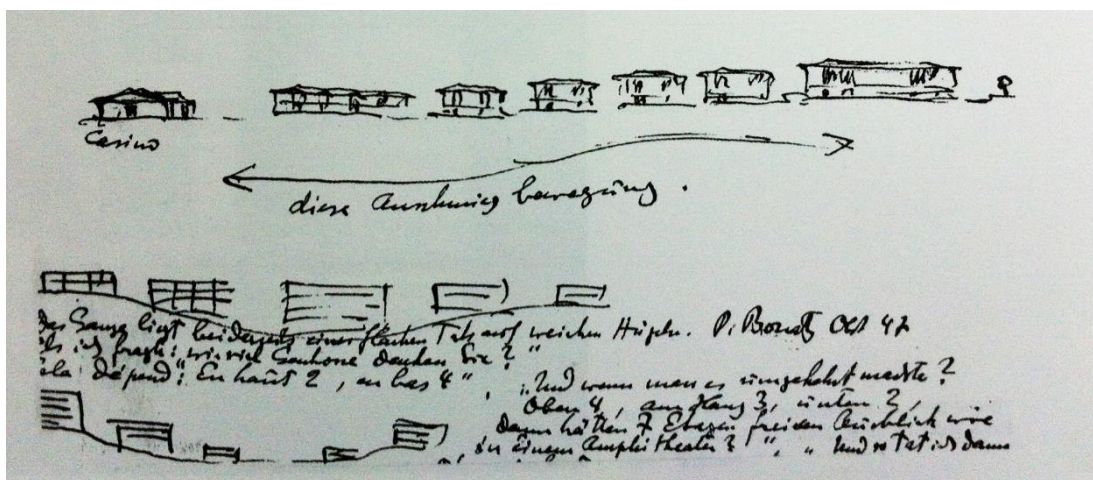 Casino
diese bewegung.
Das Ganze liegt beiderseits einer flachen Tals auf weichen Hügeln. P. Bonatz Oct 47
ich fragte: wieviel denken Sie?"
"En haut 2, en bas 4", "Und wenn man es umgekehrt machte?
Oben 4, am Hang 3, unten 2,
Dann hätten 7 Etagen freien Ausblick wie
in einem Amphitheater?" "Und so tat ich dann